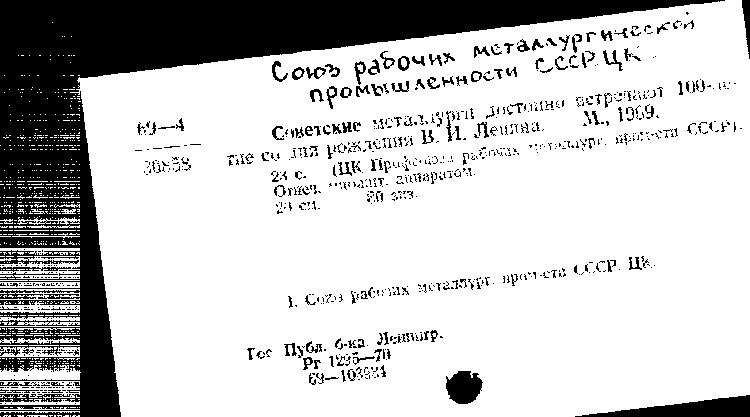 Союз рабочих металлургической
промышленности СССР. ЦК.
69—4
Советские металлурги достойно встречают 100-ле-
тие со дня рождения В. И. Ленина. М., 1969.
23 с. (ЦК Профсоюза рабочих металлург. пром-сти СССР).
Отпеч. множит. аппаратом.
20 см. 80 экз.
1. Союз рабочих металлург. пром-сти СССР. ЦК.
Гос. Публ. б-ка. Ленингр.
Рт 1295—70